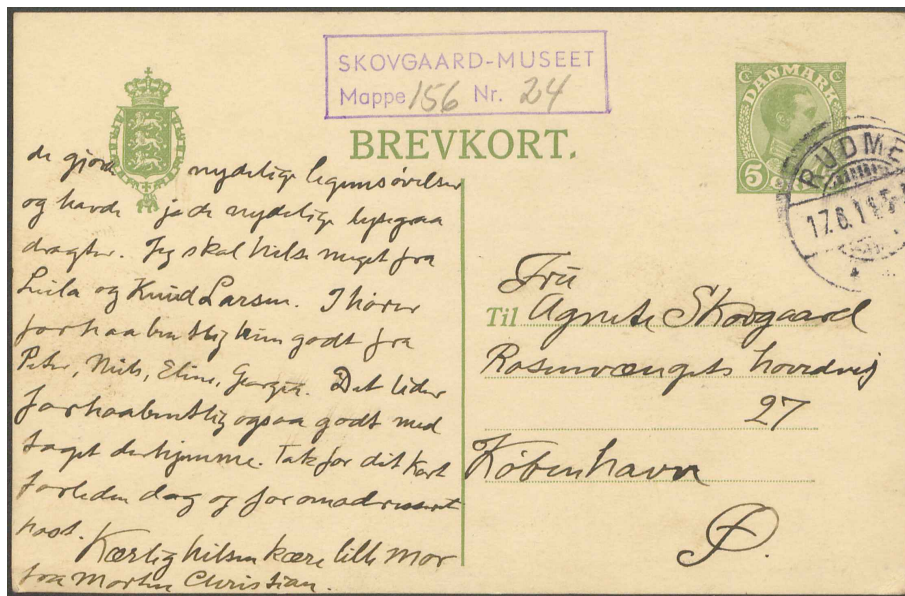 SKOVGAARD-MUSEET
Mappe 156 Nr. 24
BREVKORT.
DANMARK
5
RUDME
17.6.1
de gjorde nydelige legemsøvelser
og havde nydelige lysegraa
dragter. Jeg skal hilse meget fra
Leila og Knud Larsen. I hører
forhaabentlig kun godt fra
Peter, Niels, Eline, Georgia. Det lider
forhaabentlig ogsaa godt med
taget derhjemme. Tak for dit kort
forleden dag og for omadresseret
post.
Kærlig hilsen kære lille Mor
fra Morten Christian.
Fru
Til Agnete Skovgaard
Rosenvængets hovedvej
27
København
Ø.